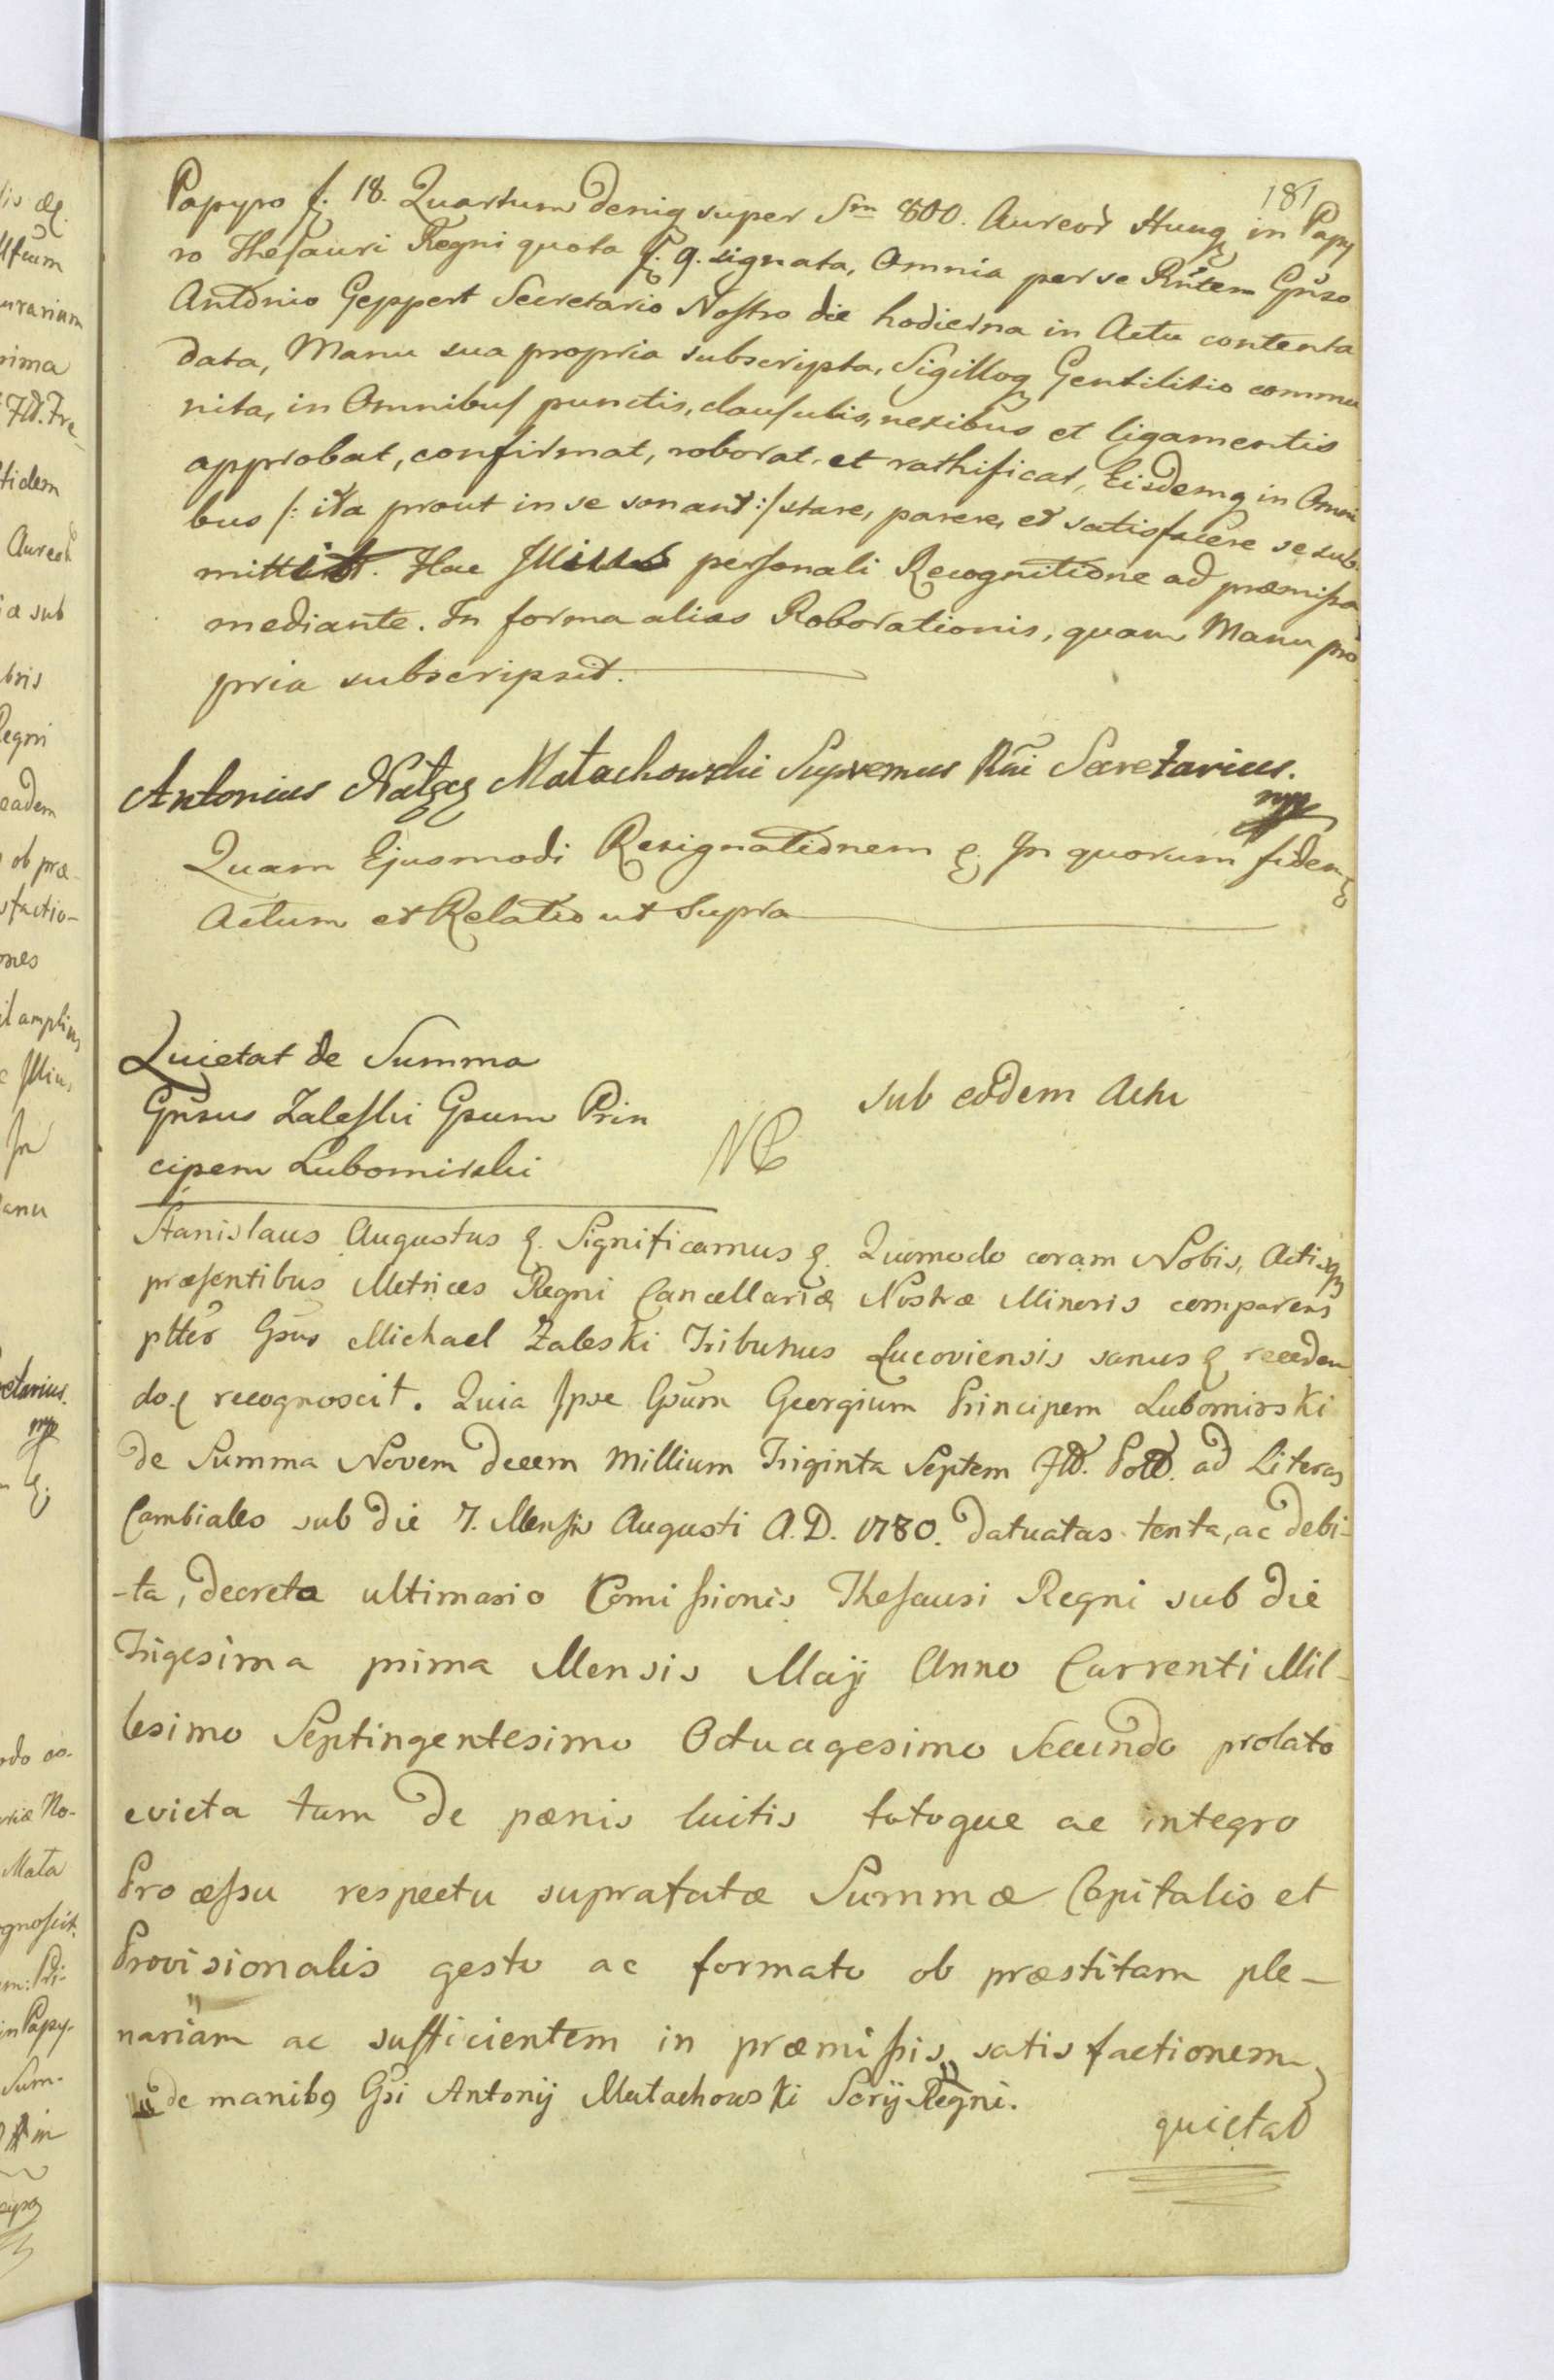 181
Papyro f. 18. Quartum deniq super Sm 800. Aureor Hung in Papy
ro Thesauri Regni quota f. 9. signata, Omnia per se Rntem Gnso
Antonio Geppert Secretario Nostro die hodierna in Actu contenta
data, Manu sua propria subscripta, Sigilloq Gentilitio commu
nita, in Omnibus punctis, clausulis, nexibus et ligamentis
approbat, confirmat, roborat et rathificat, Eisdemq in Omni
bus /: ita prout in se sonant :/ stare, parere, et satisfacere se sub-
mittit. Hac Illius personali Recognitione ad præmissa
mediante. In forma alias Roborationis, quam Manu pro
pria subscripsit.
Antonius Małachowski Supremus Rni Secretarius.
mp
Quam Ejusmodi Resignationem &. In quorum fidem &
Actum et Relatio ut Supra
Quietat de Summa
Gnsus Zaleski Gsum Prin
cipem Lubomirski
sub eodem Actu
Stanislaus Augustus &. Significamus &. Quomodo coram Nobis, Actisq
præsentibus Metrices Regni Cancellariæ Nostræ Minoris comparens
plter Gsus Michael Zaleski Tribunus Lucoviensis sanus & receden
do & recognoscit. Quia Ipse Gsum Georgium Principem Lubomirski
de Summa Novem decem Millium Triginta Septem Fld. Poll. ad Literas
Cambiales sub die 7. Mensis Augusti A.D. 1780. datuatas tenta, ac debi-
-ta, decreto ultimario Comissionis Thesauri Regni sub die
Trigesima prima Mensis Maij Anno Currenti Mil-
lesimo Septingentesimo Octuagesimo Secundo prolato
evicta tum de pænis luitis totoque ac integro
Processu respectu suprafatæ Summæ Capitalis et
Provisionalis gesto ac formato ob præstitam ple-
nariam ac sufficientem in præmissis satisfactionem
de manibq Gsi Antonij Małachowski Scrij Regni.
quietat